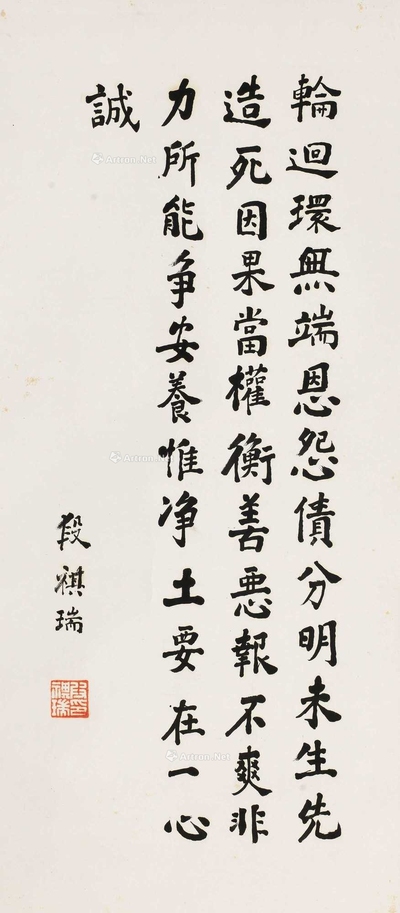 輪迴環無端恩怨債分明未生先
造死因果當權衡善惡報不爽非
力所能争安養惟净土要在一心
誠
段祺瑞
段祺瑞印
Artron.Net
Artron.Net
Artron.Net
Artron.Net